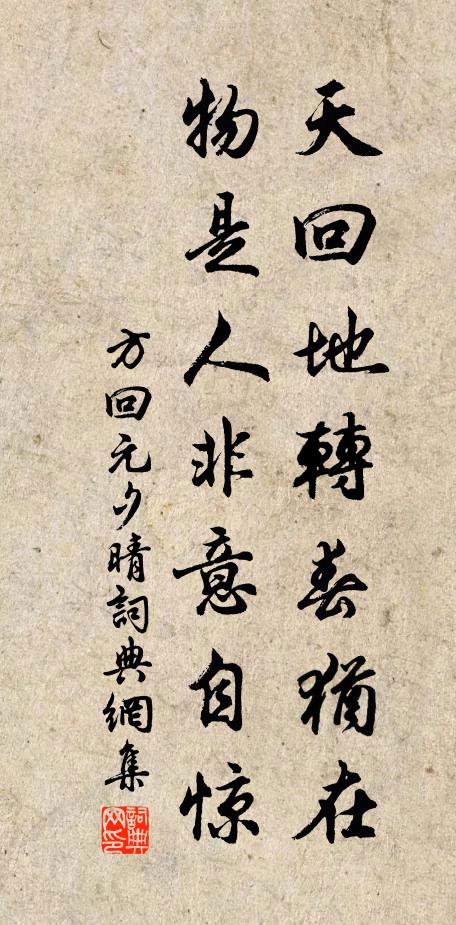 天回地轉春猶在
物是人非意自惊
方回元夕晴詞典網集
詞典網印